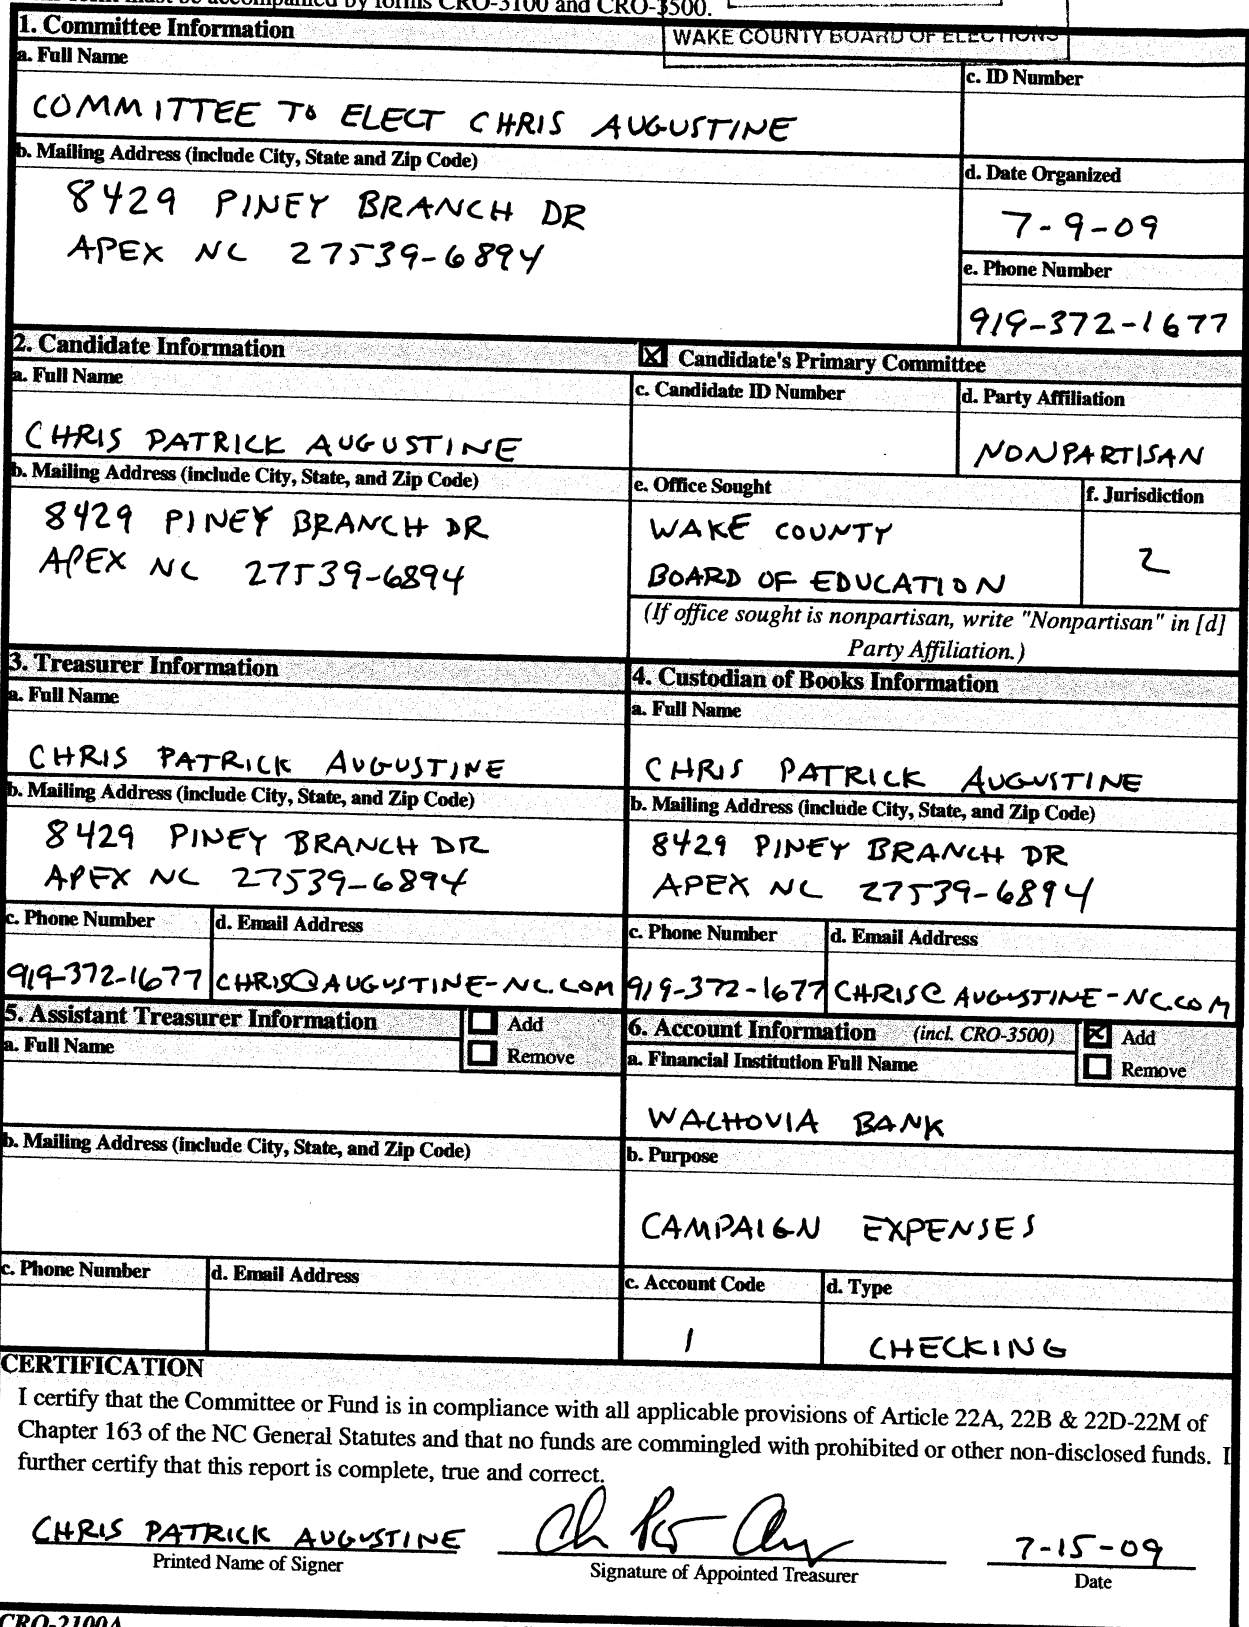 CRO-3100 and CRO-3500.
WAKE COUNTY BOARD OF ELECTIONS
1. Committee Information
a. Full Name
c. ID Number
COMMITTEE TO ELECT CHRIS AUGUSTINE
b. Mailing Address (include City, State and Zip Code)
d. Date Organized
8429 PINEY BRANCH DR
APEX NC 27539-6894
7-9-09
e. Phone Number
919-372-1677
2. Candidate Information
Candidate's Primary Committee
a. Full Name
c. Candidate ID Number
d. Party Affiliation
CHRIS PATRICK AUGUSTINE
NONPARTISAN
b. Mailing Address (include City, State, and Zip Code)
e. Office Sought
f. Jurisdiction
8429 PINEY BRANCH DR
APEX NC 27539-6894
WAKE COUNTY
BOARD OF EDUCATION
2
(If office sought is nonpartisan, write "Nonpartisan" in [d]
Party Affiliation.)
3. Treasurer Information
a. Full Name
CHRIS PATRICK AUGUSTINE
b. Mailing Address (include City, State, and Zip Code)
8429 PINEY BRANCH DR
APEX NC 27539-6894
c. Phone Number
d. Email Address
919-372-1677
CHRIS@AUGUSTINE-NC.COM
4. Custodian of Books Information
a. Full Name
CHRIS PATRICK AUGUSTINE
b. Mailing Address (include City, State, and Zip Code)
8429 PINEY BRANCH DR
APEX NC 27539-6894
c. Phone Number
d. Email Address
919-372-1677
CHRIS@AUGUSTINE-NC.COM
5. Assistant Treasurer Information
Add
Remove
a. Full Name
b. Mailing Address (include City, State, and Zip Code)
c. Phone Number
d. Email Address
6. Account Information (incl. CRO-3500)
Add
Remove
a. Financial Institution Full Name
WALHOVIA BANK
b. Purpose
CAMPAIGN EXPENSES
c. Account Code
d. Type
1
CHECKING
CERTIFICATION
I certify that the Committee or Fund is in compliance with all applicable provisions of Article 22A, 22B & 22D-22M of
Chapter 163 of the NC General Statutes and that no funds are commingled with prohibited or other non-disclosed funds. I
further certify that this report is complete, true and correct.
CHRIS PATRICK AUGUSTINE
7-15-09
Printed Name of Signer
Signature of Appointed Treasurer
Date
CRO-2100A